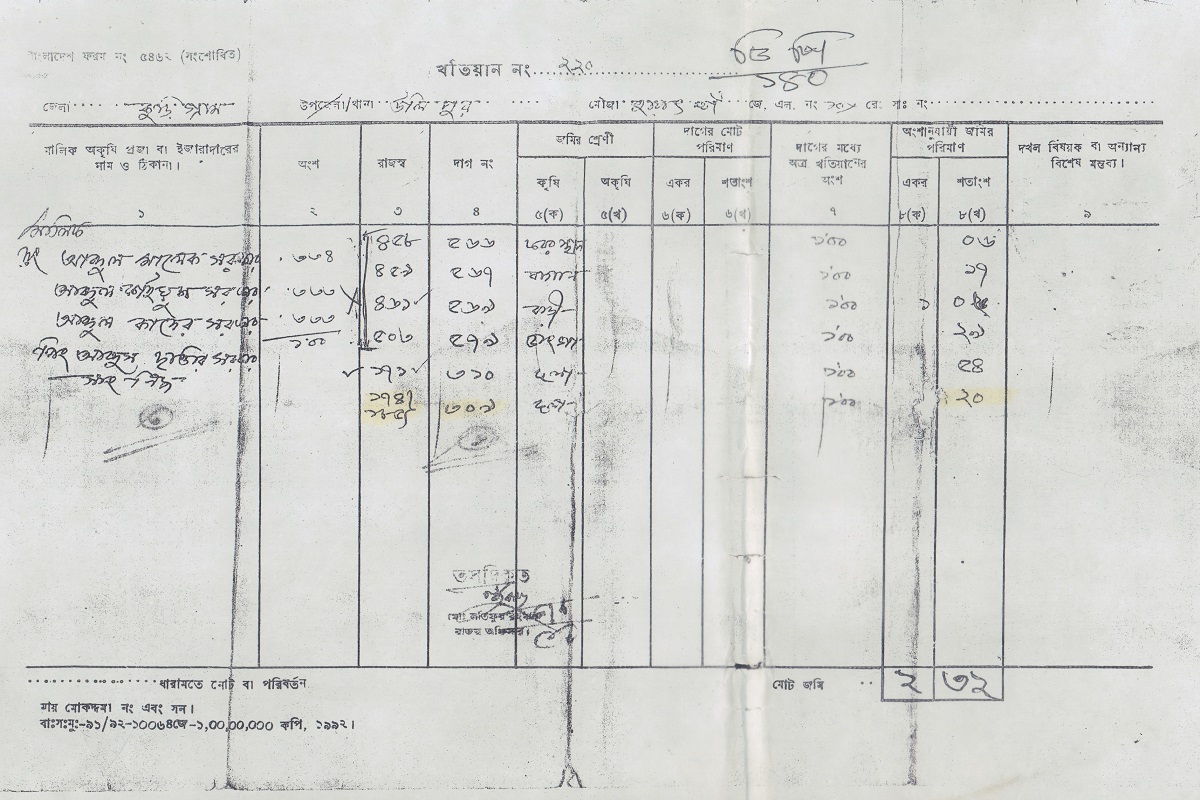 বাংলাদেশ ফরম নং ৫৪৬২ (সংশোধিত)
খতিয়ান নং ২২০
ডি পি
১৪০
জেলা কুড়িগ্রাম উপজেলা/থানা উলিপুর মৌজা জে, এল, নং ১০১ রেঃ সাঃ নং
মালিক অকৃষি প্রজা বা ইজারাদারের নাম ও ঠিকানা। অংশ রাজস্ব দাগ নং জমির শ্রেণী দাগের মোট পরিমাণ দাগের মধ্যে অত্র খতিয়ানের অংশ অংশানুযায়ী জমির পরিমাণ দখল বিষয়ক বা অন্যান্য বিশেষ মন্তব্য।
কৃষি অকৃষি একর শতাংশ একর শতাংশ
১ ২ ৩ ৪ ৫(ক) ৫(খ) ৬(ক) ৬(খ) ৭ ৮(ক) ৮(খ) ৯
৪৫৮ ২৬৬ ১'০০ ০৬
আব্দুল মালেক সরকার ৩৩৪
৪৫৯ ২৬৭ বাগান ১'০০ ১৭
আব্দুল সরকার ৩৩৩
৪৬১ ২৬৯ বাড়ী ১'০০ ১
আব্দুল কাদের সরকার ৩৩৩
১'০০ ৫০৬ ২৭৯ ১'০০ ২৯
পিং আব্দুস ছাত্তার সরকার
সাং নিজ
১৭১ ৩১০ দলা ১'০০ ৫৪
১৭৪ ৩০৯ দলা ১'০০ ২০
তসদিককৃত
রাজস্ব অফিসার।
ধারামতে নোট বা পরিবর্তন মোট জমি ২ ৩২
মায় মোকদ্দমা নং এবং সন।
বাঃসঃমুঃ-৯১/৯২-১০০৬৪জে-১,০০,০০,০০০ কপি, ১৯৯২।